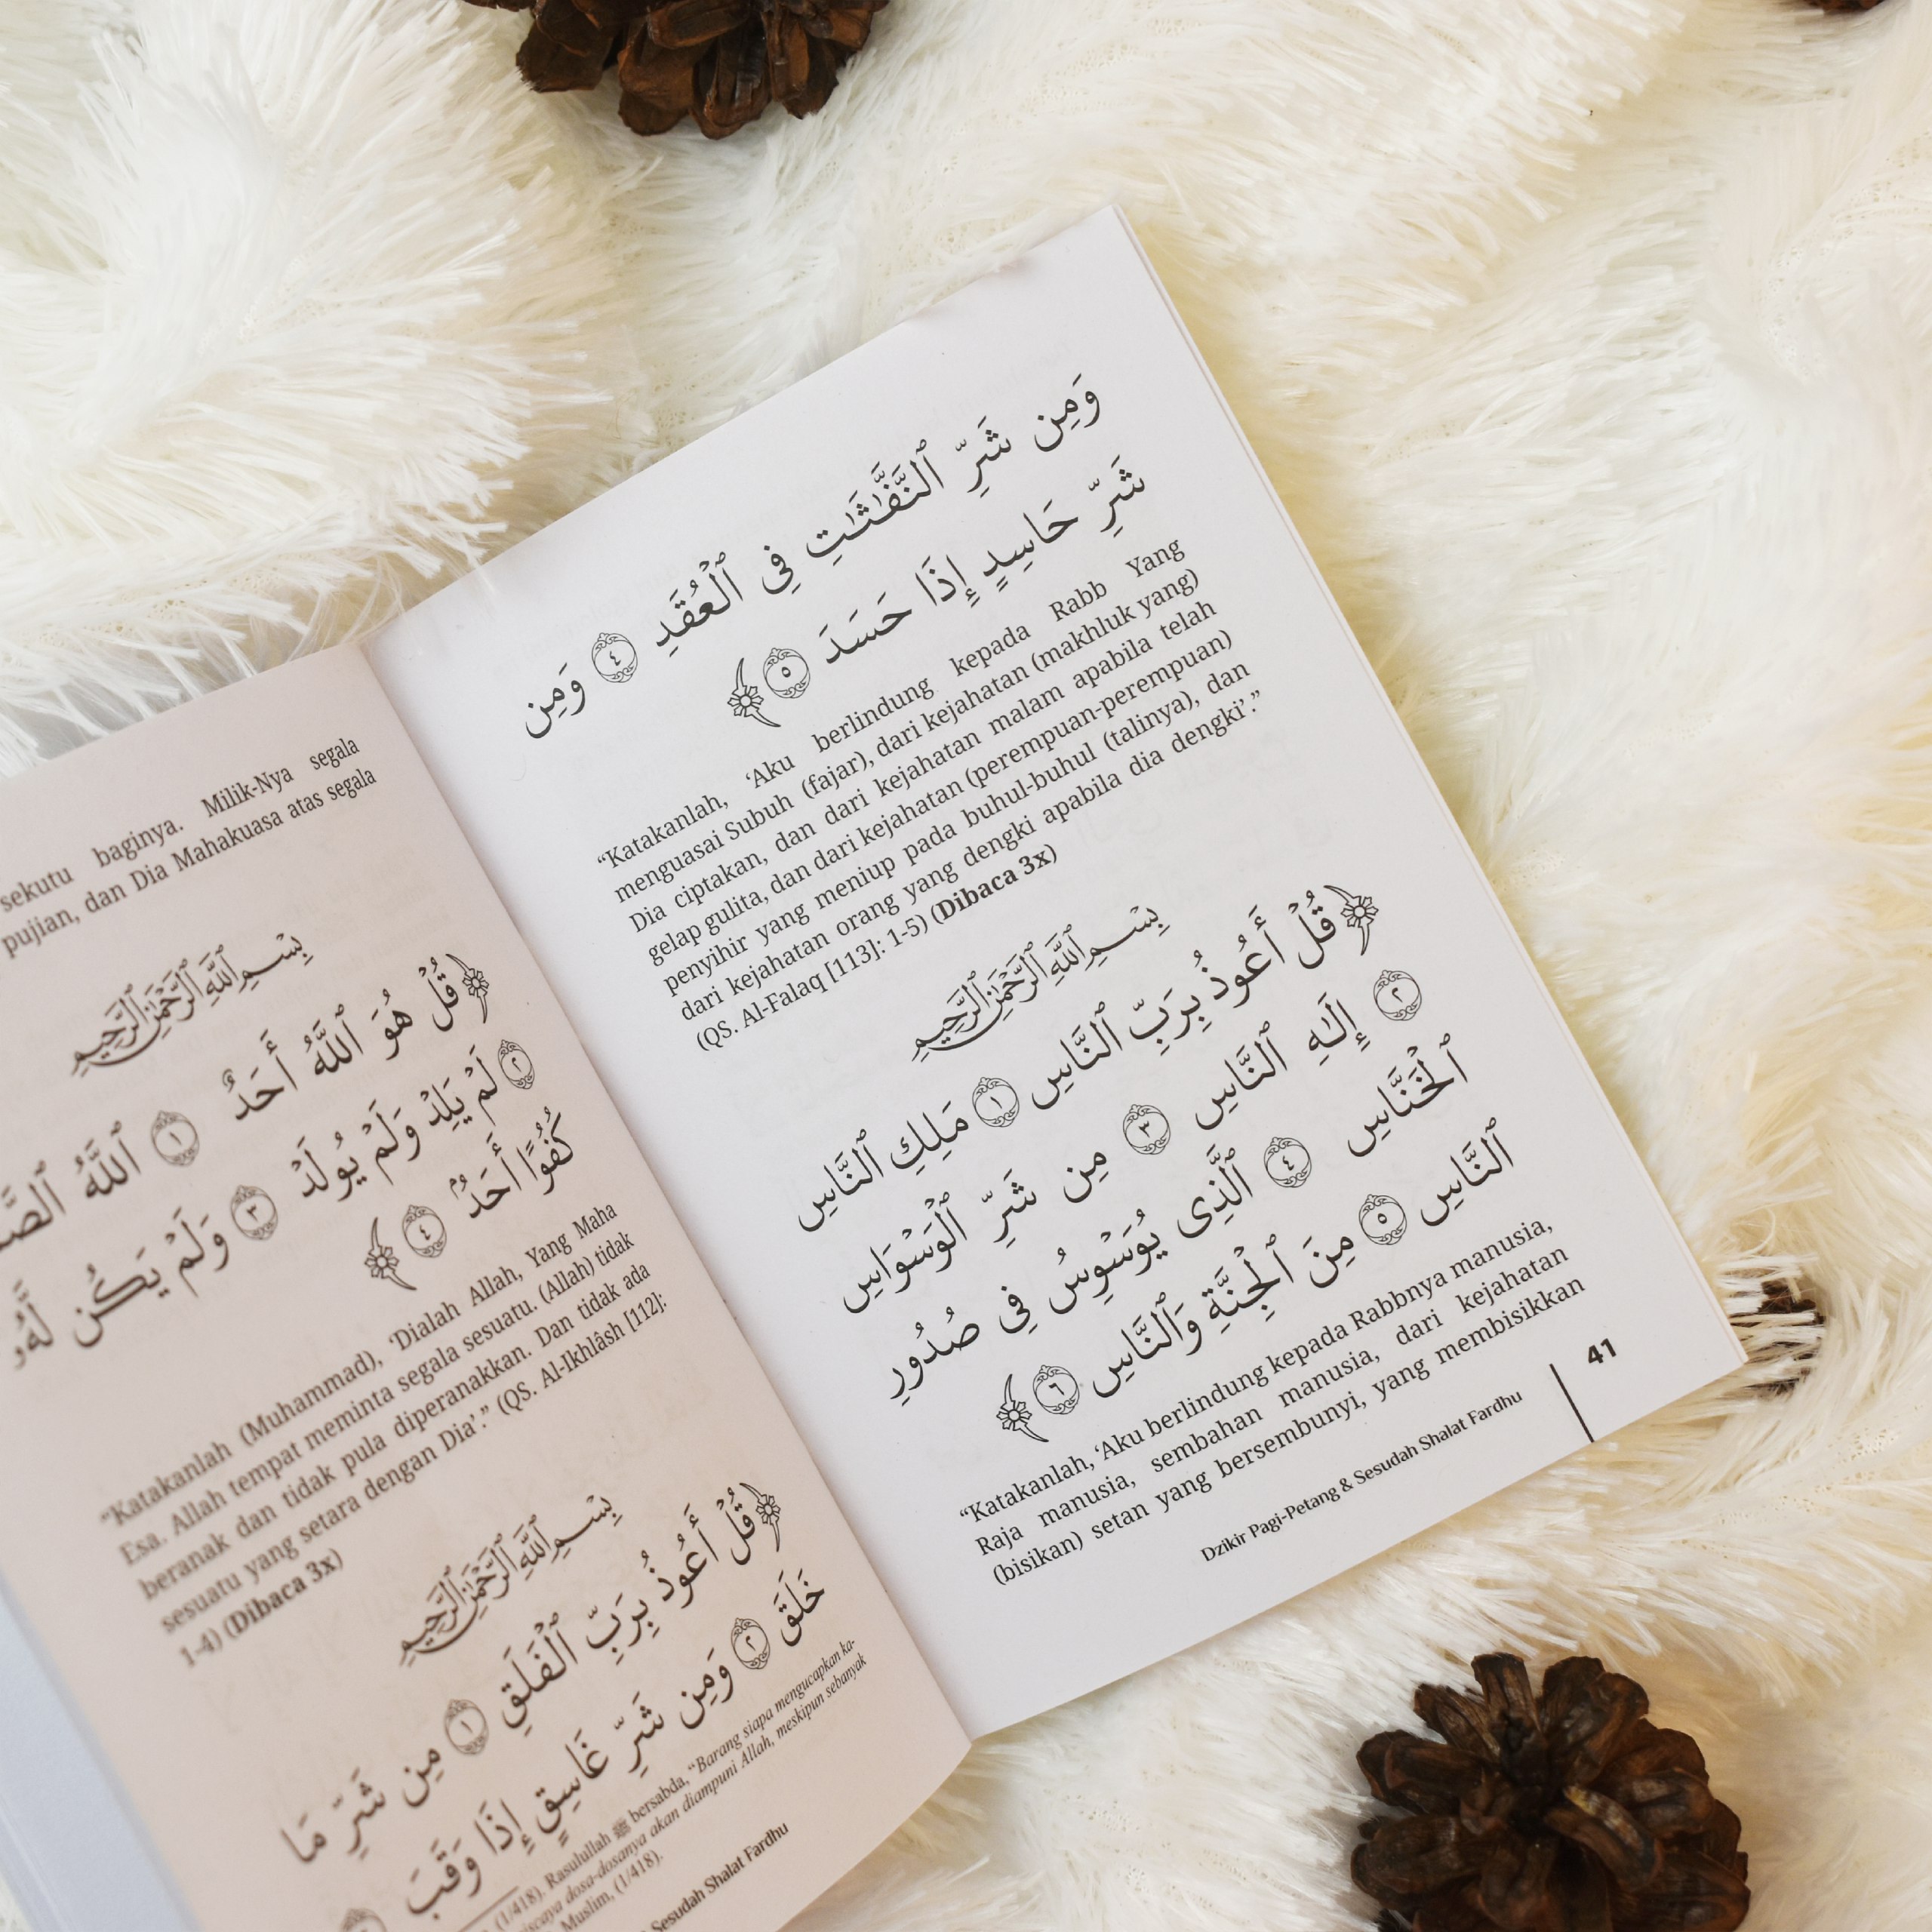 sekutu baginya. Milik-Nya segala
pujian, dan Dia Mahakuasa atas segala
بِسْمِ ٱللَّهِ ٱلرَّحْمَٰنِ ٱلرَّحِيمِ
﴿قُلْ هُوَ ٱللَّهُ أَحَدٌ ١ ٱللَّهُ
٢ لَمْ يَلِدْ وَلَمْ يُولَدْ ٣ وَلَمْ يَكُن لَّهُۥ
كُفُوًا أَحَدٌۢ ٤﴾
“Katakanlah (Muhammad), ‘Dialah Allah, Yang Maha
Esa. Allah tempat meminta segala sesuatu. (Allah) tidak
beranak dan tidak pula diperanakkan. Dan tidak ada
sesuatu yang setara dengan Dia’.” (QS. Al-Ikhlâsh [112]:
1-4) (Dibaca 3x)
بِسْمِ ٱللَّهِ ٱلرَّحْمَٰنِ ٱلرَّحِيمِ
﴿قُلْ أَعُوذُ بِرَبِّ ٱلْفَلَقِ ١ مِن شَرِّ مَا
خَلَقَ ٢ وَمِن شَرِّ غَاسِقٍ إِذَا وَقَبَ
(1/418). Rasulullah ﷺ bersabda, “Barang siapa mengucapkan ka-
dosa-dosanya akan diampuni Allah, meskipun sebanyak
Muslim, (1/418).
Sesudah Shalat Fardhu
وَمِن شَرِّ ٱلنَّفَّٰثَٰتِ فِى ٱلْعُقَدِ ٤ وَمِن
شَرِّ حَاسِدٍ إِذَا حَسَدَ ٥﴾
“Katakanlah, ‘Aku berlindung kepada Rabb Yang
menguasai Subuh (fajar), dari kejahatan (makhluk yang)
Dia ciptakan, dan dari kejahatan malam apabila telah
gelap gulita, dan dari kejahatan (perempuan-perempuan)
penyihir yang meniup pada buhul-buhul (talinya), dan
dari kejahatan orang yang dengki apabila dia dengki’.”
(QS. Al-Falaq [113]: 1-5) (Dibaca 3x)
بِسْمِ ٱللَّهِ ٱلرَّحْمَٰنِ ٱلرَّحِيمِ
﴿قُلْ أَعُوذُ بِرَبِّ ٱلنَّاسِ ١ مَلِكِ ٱلنَّاسِ
٢ إِلَٰهِ ٱلنَّاسِ ٣ مِن شَرِّ ٱلْوَسْوَاسِ
ٱلْخَنَّاسِ ٤ ٱلَّذِى يُوَسْوِسُ فِى صُدُورِ
ٱلنَّاسِ ٥ مِنَ ٱلْجِنَّةِ وَٱلنَّاسِ ٦﴾
“Katakanlah, ‘Aku berlindung kepada Rabbnya manusia,
Raja manusia, sembahan manusia, dari kejahatan
(bisikan) setan yang bersembunyi, yang membisikkan
Dzikir Pagi-Petang & Sesudah Shalat Fardhu
41